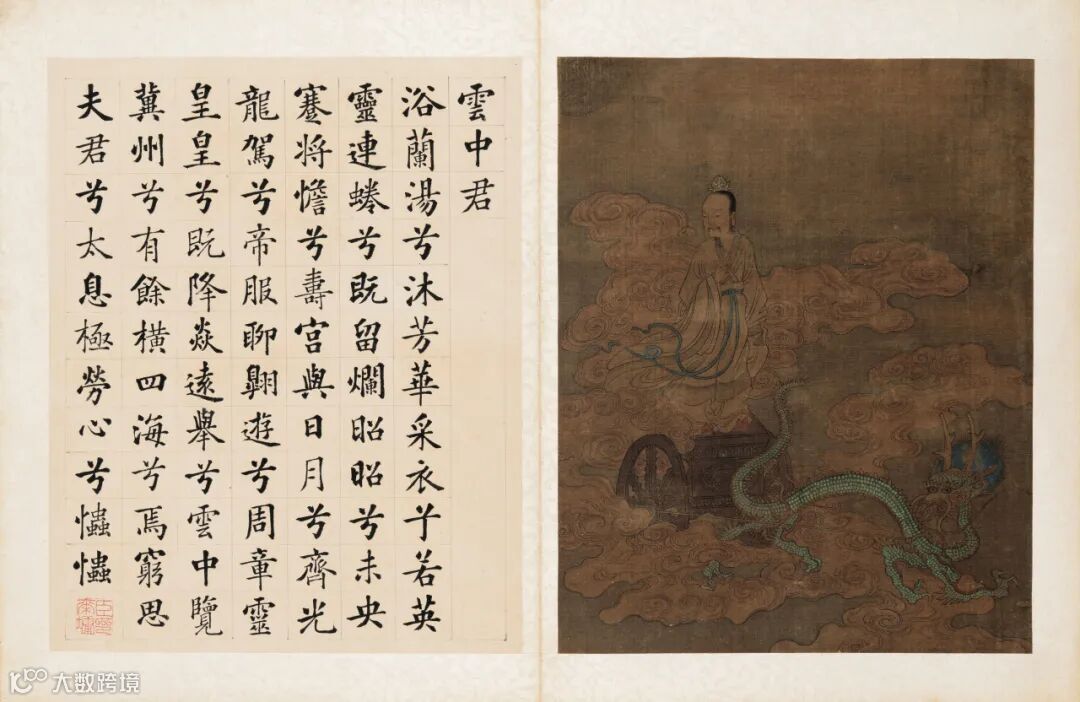 雲中君
浴蘭湯兮沐芳華采衣兮若英
靈連蜷兮既留爛昭昭兮未央
蹇將憺兮壽宮與日月兮齊光
龍駕兮帝服聊翺遊兮周章靈
皇皇兮既降焱遠舉兮雲中覽
冀州兮有餘橫四海兮焉窮思
夫君兮太息極勞心兮𢥞𢥞
大数跨境